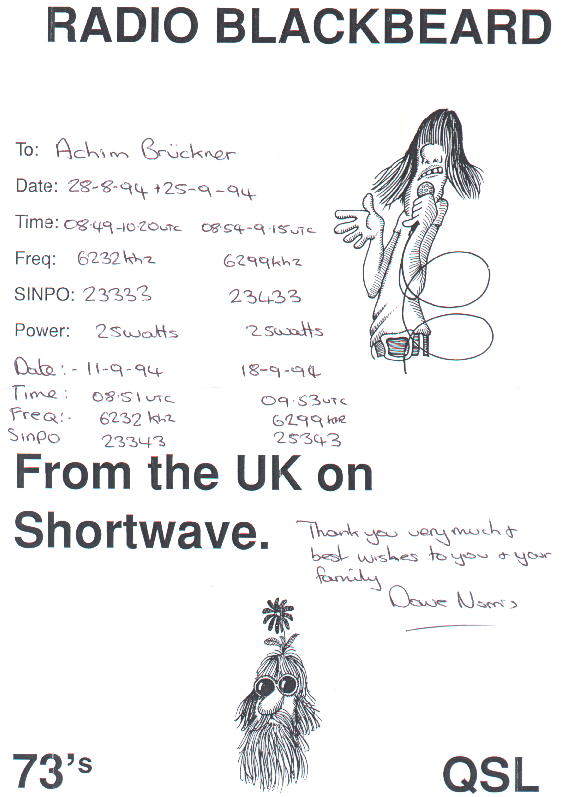 RADIO BLACKBEARD
To: Achim Brückner
Date: 28-8-94 + 25-9-94
Time: 08:49-10:20UTC 08:54-9.15UTC
Freq: 6232khz 6299khz
SINPO: 23333 23433
Power: 25watts 25watts
Date:- 11-9-94 18-9-94
Time: 08:51UTC 09:53UTC
Freq:- 6232khz 6299khz
Sinpo 23343 25343
From the UK on
Shortwave.
Thank you very much &
best wishes to you & your
family
Dave Norris
73's QSL